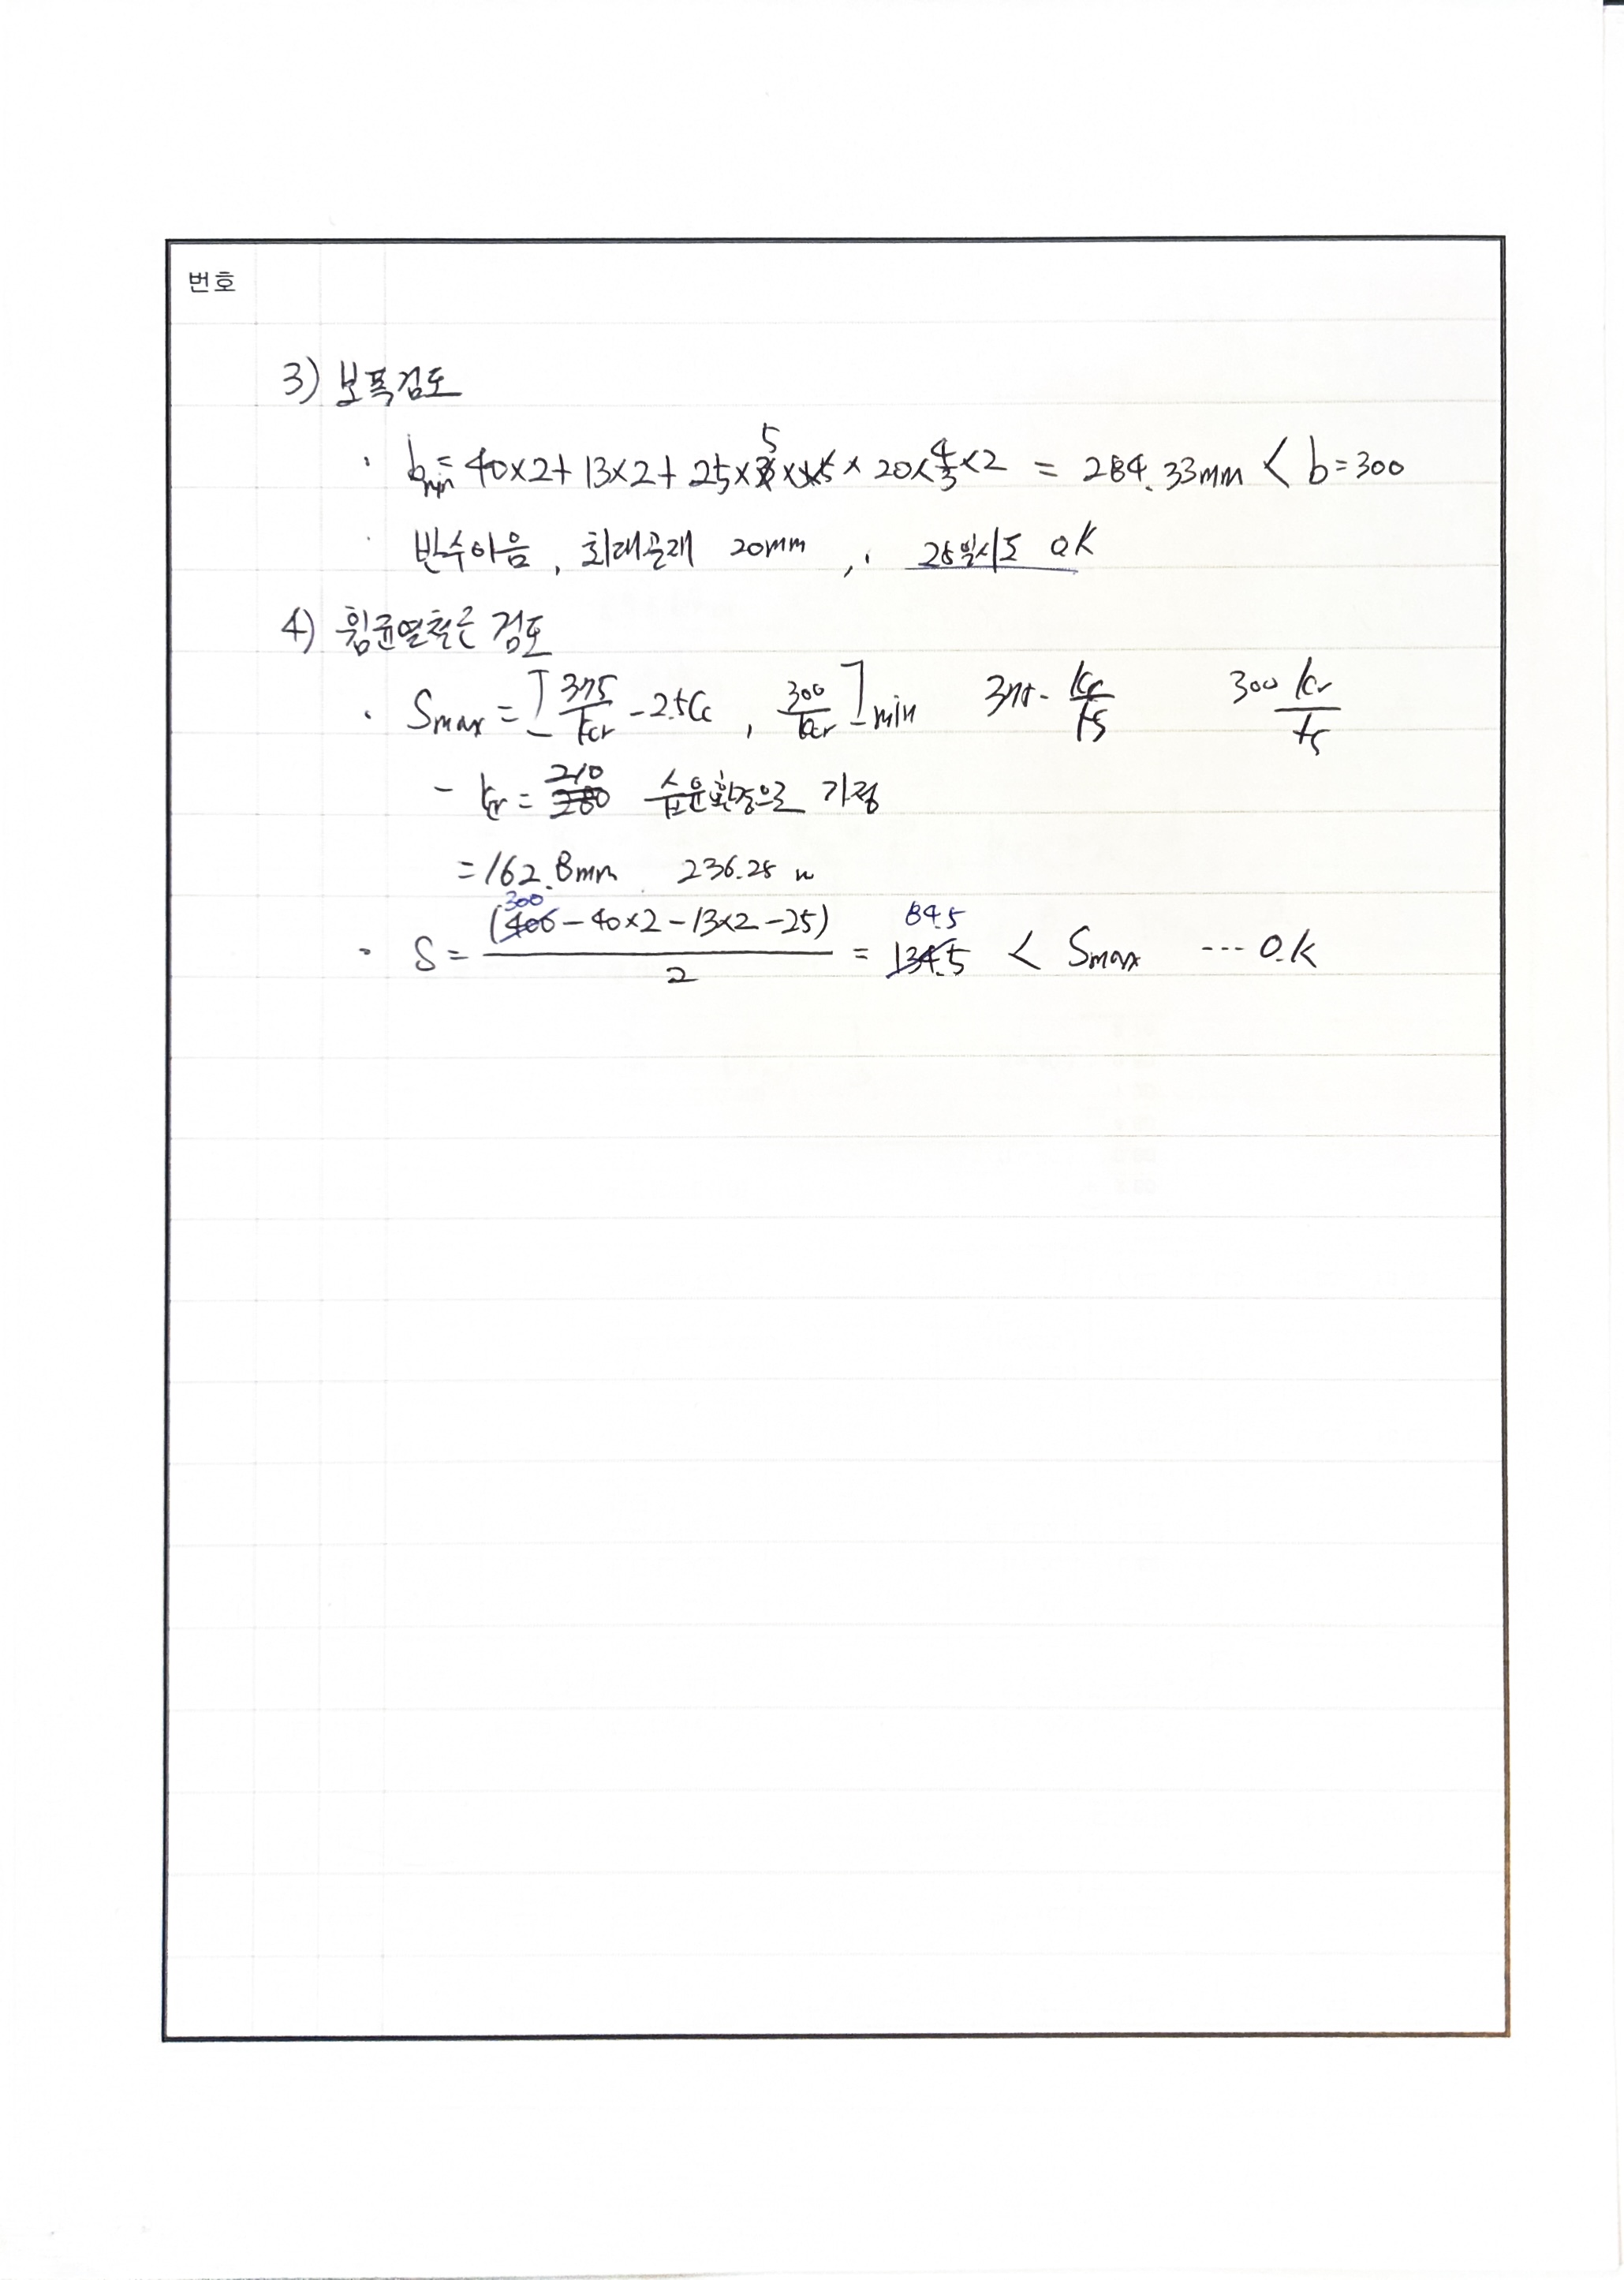 번호
3) 보폭검토
· bmin = 40×2 + 13×2 + 25×5 × 20×4/3×2 = 284.33mm < b=300
· 반수이음, 최대골재 20mm, 28일시도 OK
4) 휨균열철근 검토
· Smax = [375/kcr - 2.5Cc, 300/kcr]min 375· kcr/fs 300 kcr/fs
- kcr = 210 습윤환경으로 가정
= 162.8mm 236.28 〃
· S = (300 - 40×2 - 13×2 - 25)/2 = 84.5 < Smax ··· O.K